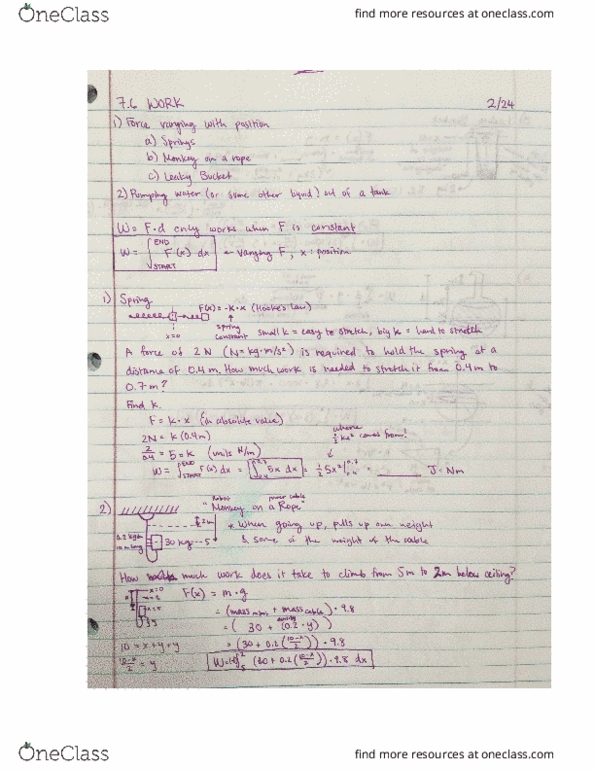 OneClass
find more resources at oneclass.com
7.6 WORK 2/24
1) Force varying with position
a) Springs
b) Monkey on a rope
c) Leaky Bucket
2) Pumping water (or some other liquid) out of a tank
W = F·d only works when F is constant
W = ∫ END START F(x) dx ← Varying F, x: position
1) Spring
F(x) = -k·x (Hooke's Law)
x=0
spring constant small k = easy to stretch, big k = hard to stretch
A force of 2 N (N = kg·m/s²) is required to hold the spring at a
distance of 0.4 m. How much work is needed to stretch it from 0.4 m to
0.7 m?
Find k.
F = k·x (in absolute value)
2N = k (0.4m)
2/0.4 = 5 = k (units N/m)
where ½kx² comes from!
W = ∫ END START F(x) dx = ∫ 0.7 0.4 5x dx = ½ 5x² | 0.7 0.4 = J = Nm
2)
Robot power cable
"Monkey on a Rope"
2m
* When going up, pulls up own weight
30 kg 5
& some of the weight of the cable
0.2 kg/m
10 m long
How much work does it take to climb from 5m to 2m below ceiling?
F(x) = m·g
= (mass + mass cable) · 9.8
= (30 + (0.2·y))
10 = x + y + y
= (30 + 0.2 (10-x/2)) · 9.8
10-x/2 = y
W = ∫ 2 5 (30 + 0.2 (10-x/2)) · 9.8 dx
OneClass
find more resources at oneclass.com